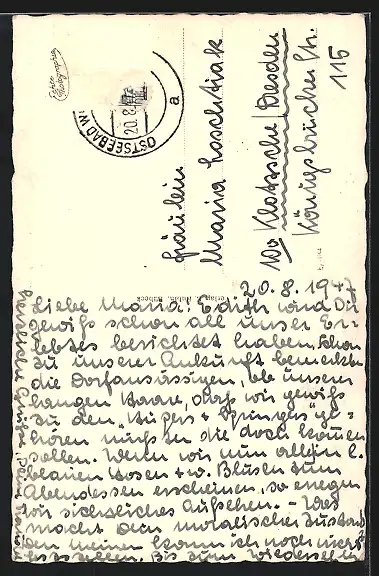 Echte
Photographie
OSTSEEBAD W
20.8.
a
Fräulein
Maria Loschtiak
10a Klotzsche/Dresden
Königsbrücker Str.
115
20.8.1947
Liebe Maria! Edith wird Dir
gewiß schon all unser Er-
lebtes berichtet haben. Schon
zu unserer Ankunft bemerkten
die Dorfansässigen, ob unserer
langen Haare, daß wir gewiß
zu den "Hupers + Springers" ge-
hören müßten die doch kommen
sollen. Wenn wir nun allein i.
blauen Hosen + w. Blusen zum
Abendessen erscheinen, so erregen
wir sichtliches Aufsehen. - Was
macht dein moralischer Zustand
den meinen kann ich noch nicht
feststellen. Bis zum Wiedersehen
herzliche Grüße, Deine